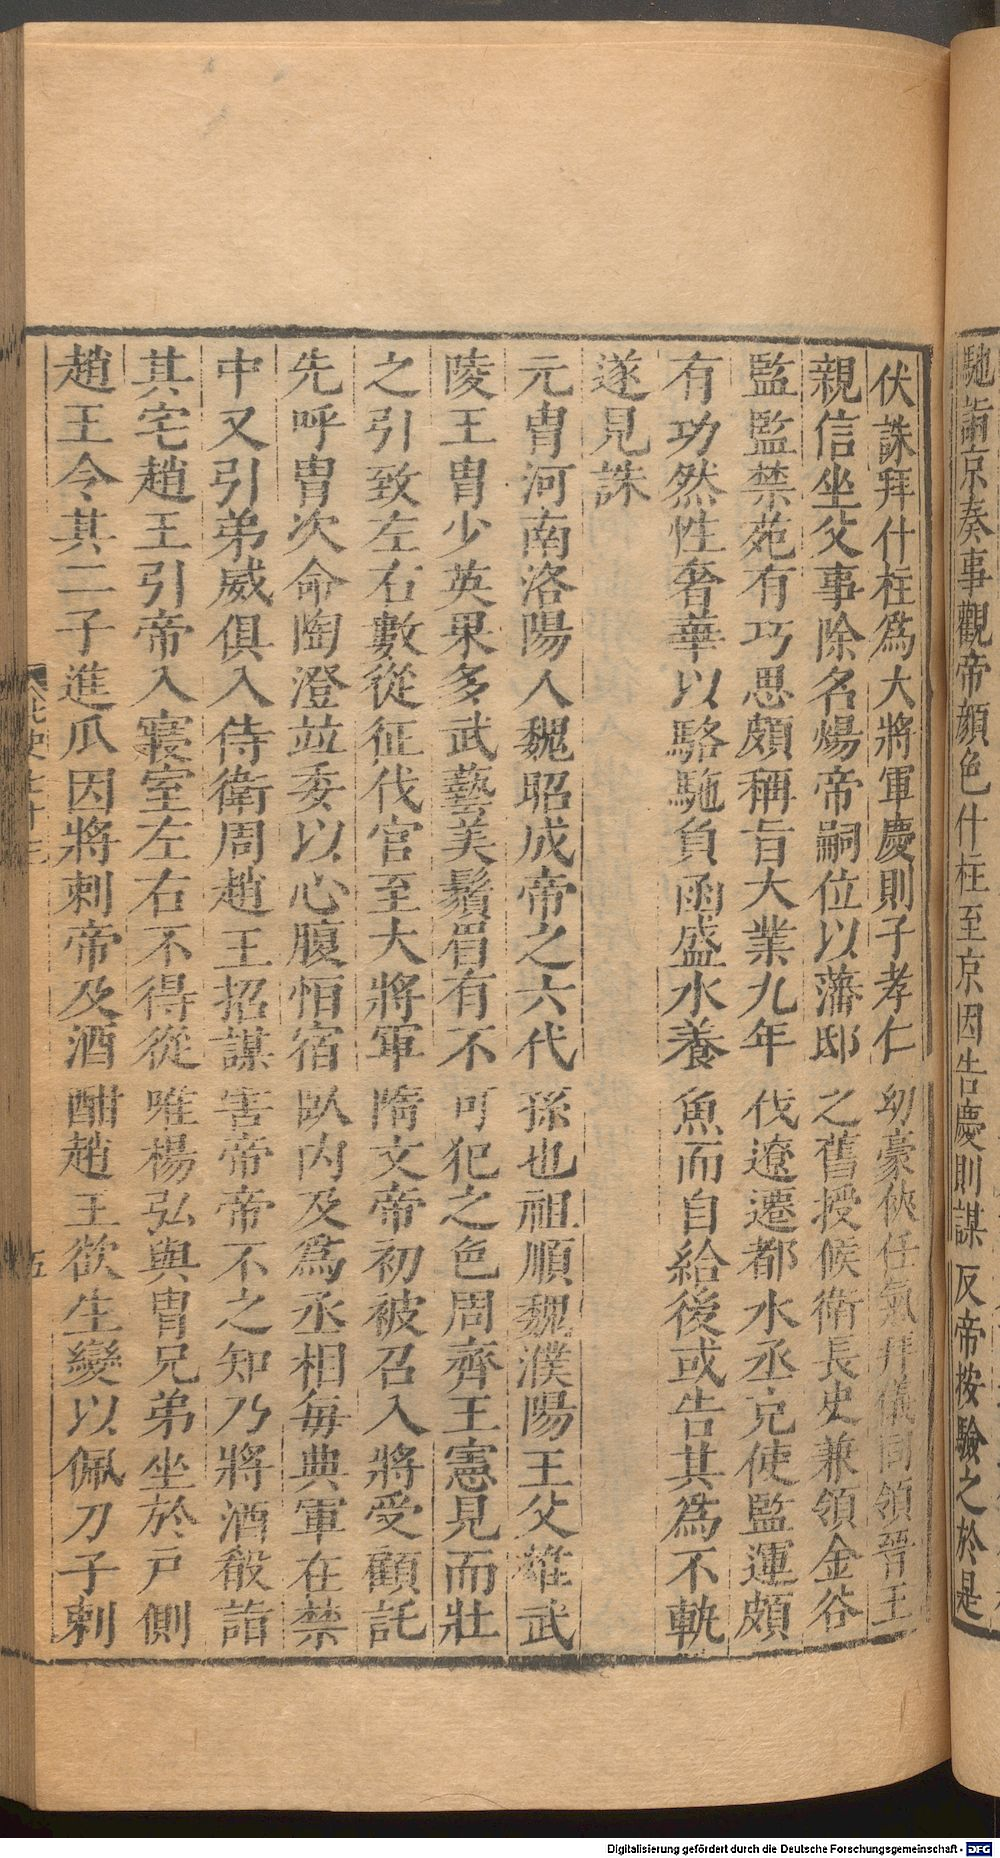 馳詣京奏事觀帝顏色什柱至京因告慶則謀反帝按驗之於是
伏誅拜什柱爲大將軍慶則子孝仁幼豪俠任氣拜儀同領晉王
親信坐父事除名煬帝嗣位以藩邸之舊授候衛長史兼領金谷
監監禁苑有巧思頗稱旨大業九年伐遼遷都水丞充使監運頗
有功然性奢華以駱駞負函盛水養魚而自給後或告其爲不軌
遂見誅
元胄河南洛陽人魏昭成帝之六代孫也祖順魏濮陽王父雄武
陵王胄少英果多武藝美鬚眉有不可犯之色周齊王憲見而壯
之引致左右數從征伐官至大將軍隋文帝初被召入將受顧託
先呼胄次命陶澄竝委以心腹恒宿臥內及爲丞相每典軍在禁
中又引弟威俱入侍衛周趙王招謀害帝帝不之知乃將酒殽詣
其宅趙王引帝入寢室左右不得從唯楊弘與胄兄弟坐於戶側
趙王令其二子進瓜因將刺帝及酒酣趙王欲生變以佩刀子刺
五
Digitalisierung gefördert durch die Deutsche Forschungsgemeinschaft - DFG